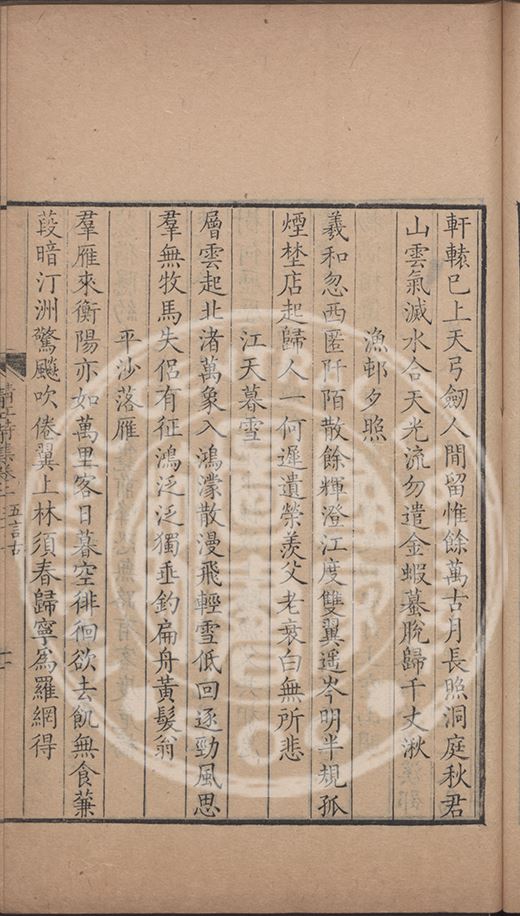 軒轅已上天弓劒人間留惟餘萬古月長照洞庭秋君
山雲氣滅水合天光流勿遣金蝦蟇脫歸千丈湫
漁邨夕照
羲和忽西匿阡陌散餘輝澄江度雙翼遥岑明半規孤
煙埜店起歸人一何遲遺榮羨父老衰白無所悲
江天暮雪
層雲起北渚萬象入鴻濛散漫飛輕雪低回逐勁風思
羣無牧馬失侶有征鴻泛泛獨垂釣扁舟黃髮翁
平沙落雁
羣雁來衡陽亦如萬里客日暮空徘徊欲去飢無食蒹
葭暗汀洲驚飇吹倦翼上林須春歸寧爲羅網得
五言古